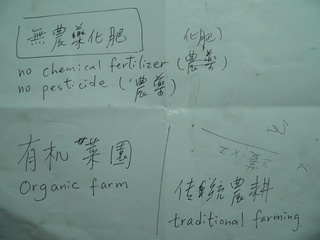 無農藥化肥
化肥)
no chemical fertilizer (農藥)
no pesticide (農藥)
有机菜園
Organic farm
传統農耕
traditional farming